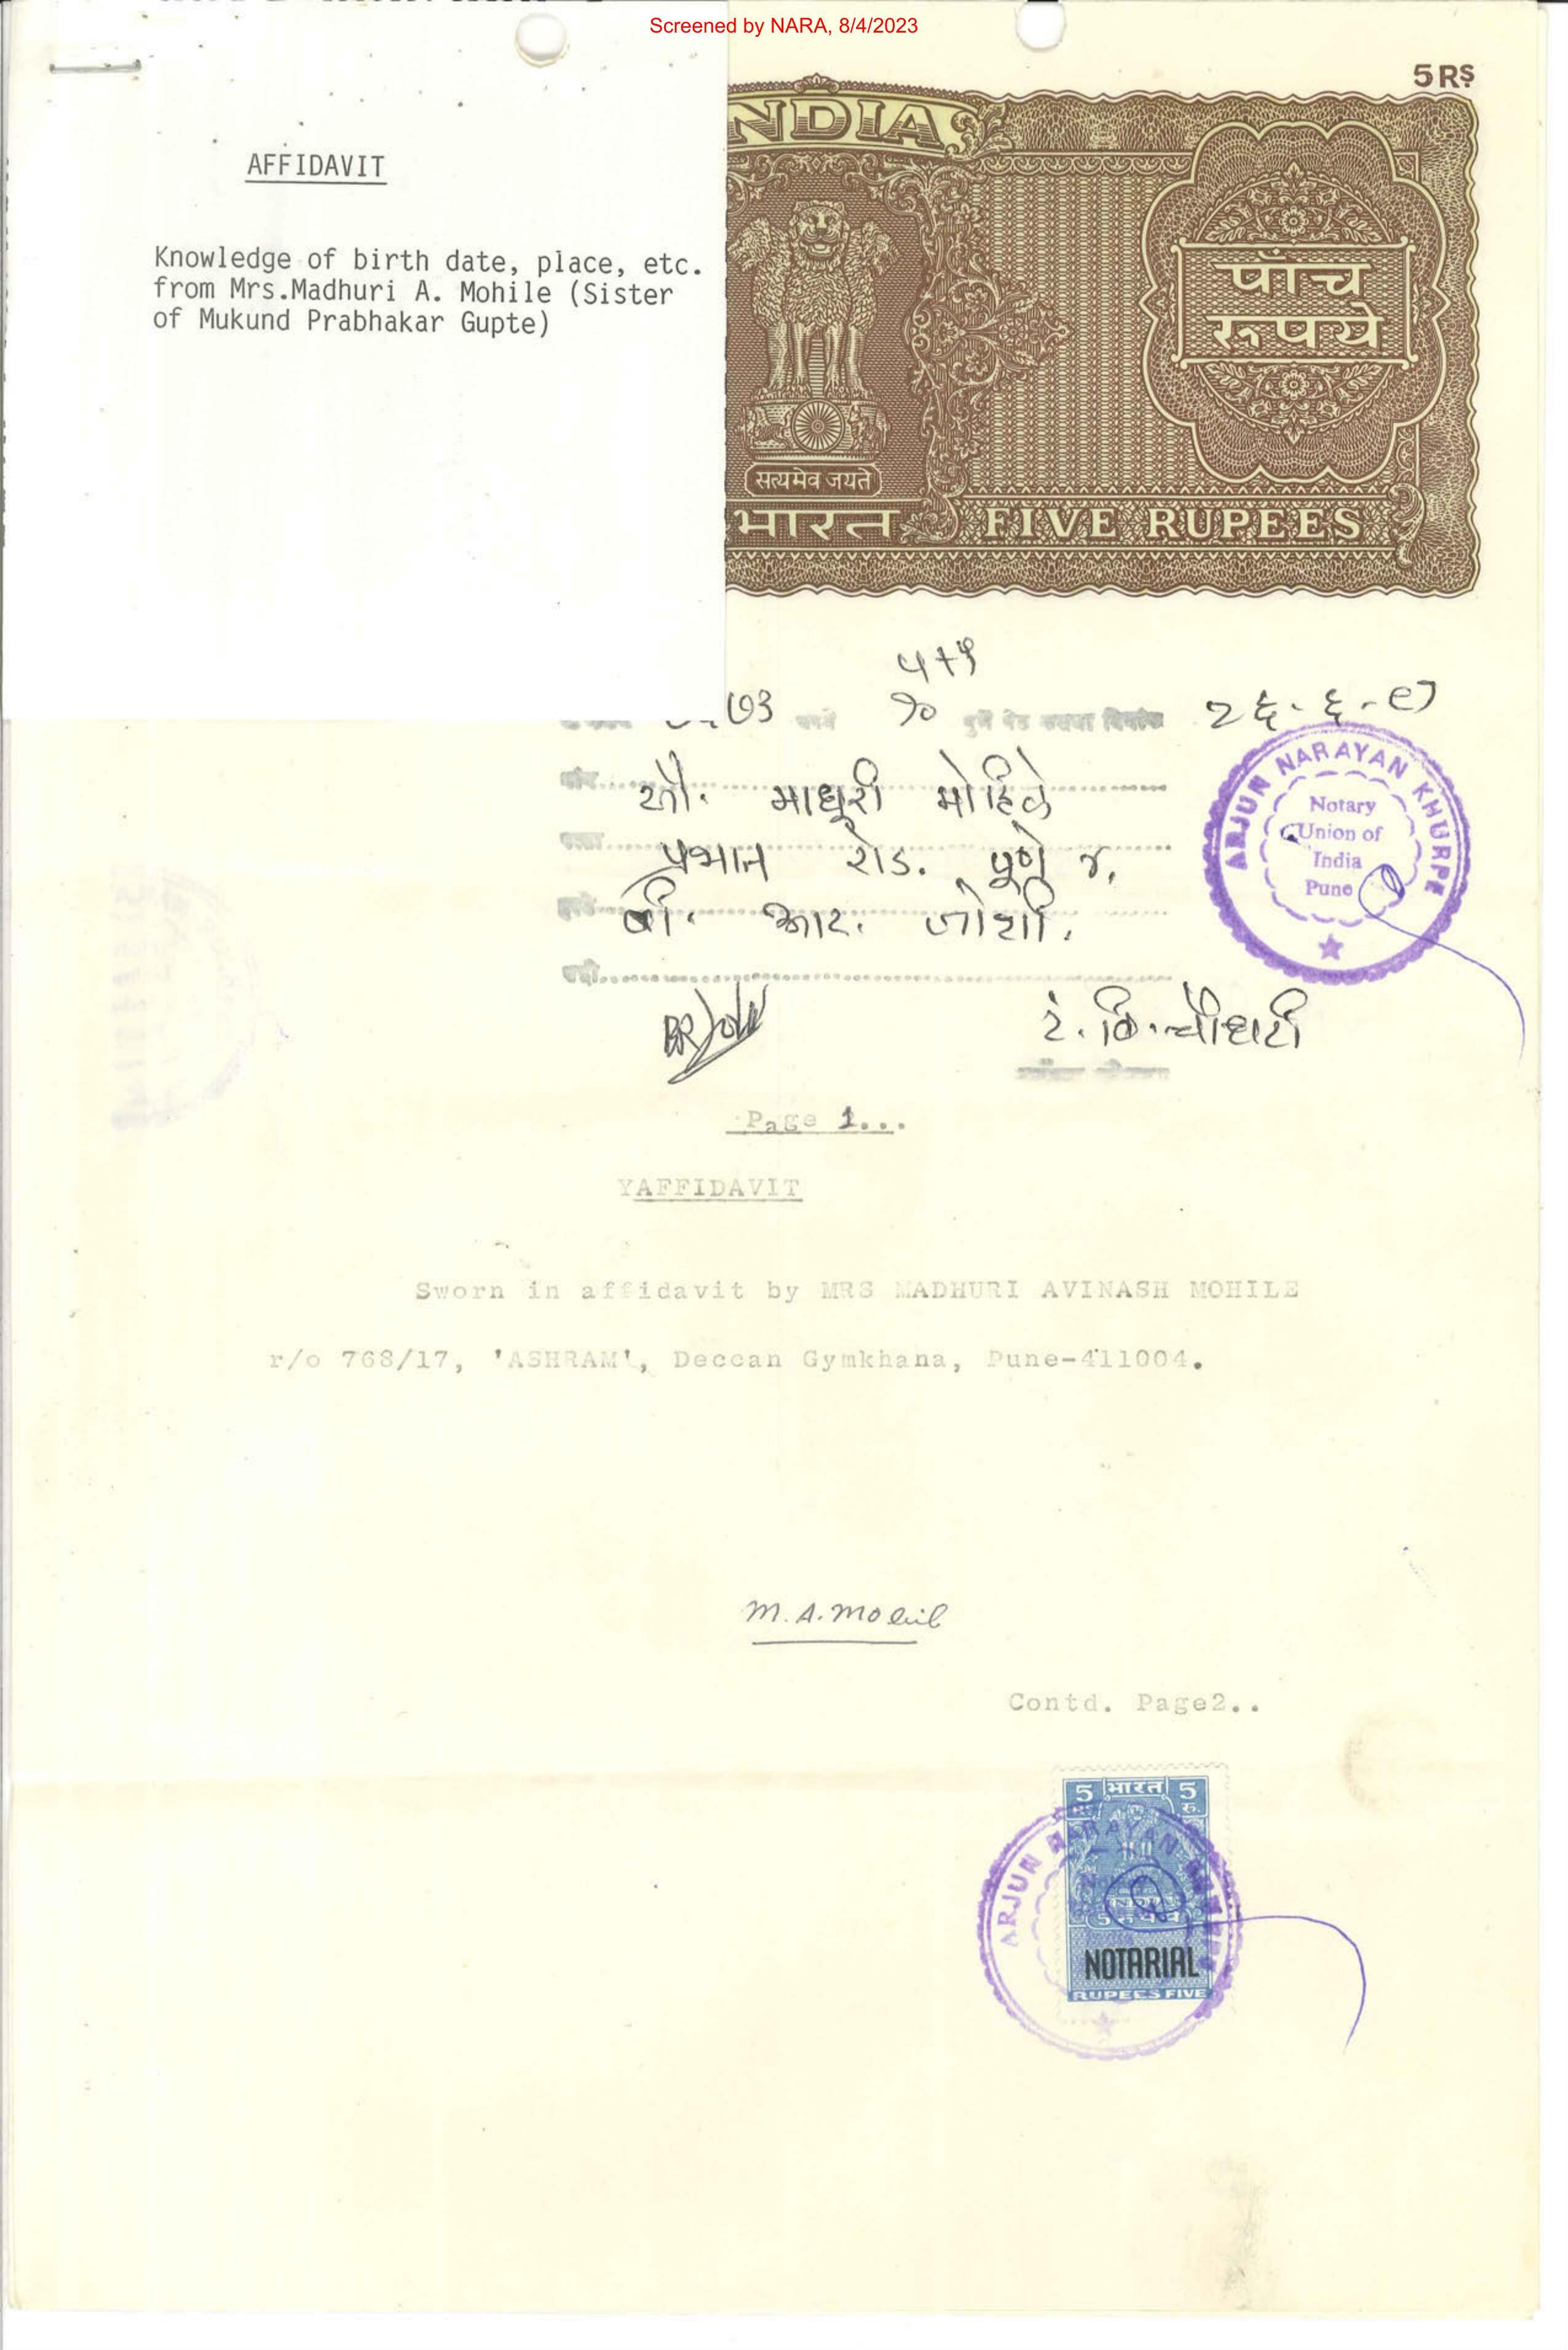 Screened by NARA, 8/4/2023
AFFIDAVIT
Knowledge of birth date, place, etc.
from Mrs.Madhuri A. Mohile (Sister
of Mukund Prabhakar Gupte)
5 RS.
INDIA
पाँच
रूपये
सत्यमेव जयते
भारत FIVE RUPEES
५+५
७३ १० पुणें पेठ दिनांक २६.६.८७
सौ. माधुरी मोहिले
प्रभात रोड. पूणे ४.
बी. आर. जोशी.
ARJUN NARAYAN KHURPE
Notary
Union of
India
Pune
रं. वि. चौधरी
Page 1...
YAFFIDAVIT
Sworn in affidavit by MRS MADHURI AVINASH MOHILE
r/o 768/17, 'ASHRAM', Deccan Gymkhana, Pune-411004.
M. A. Mohile
Contd. Page2..
5 भारत 5
RS रु.
ARJUN NARAYAN
INDIA
NOTARIAL
RUPEES FIVE